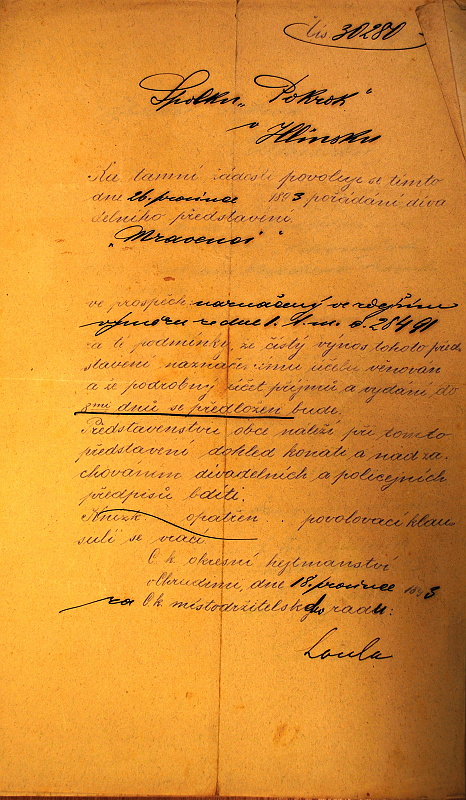 čís 30280
Spolku „Pokrok“
v Hlinsku
Ku tamní žádosti povoluje se tímto
dne 26. prosince 1893 pořádání diva
delního představení
„Mravenci“
ve prospěch naznačený ve zdejším
výnosu ze dne 1. t. m. č. 28491
za té podmínky, že čistý výnos tohoto před
stavení naznačenému účelu věnován
a že podrobný účet příjmů a vydání do
3mi dnů se předložen bude.
Představenstvu obce náleží při tomto
představení dohled konati a nad za
chováním divadelních a policejních
předpisů bdíti.
Knížk opatřen povolovací klau
sulí se vrací.
C. k. okresní hejtmanství
v Chrudimi, dne 18. prosince 1893
za C. k. místodržitelského radu:
Loula